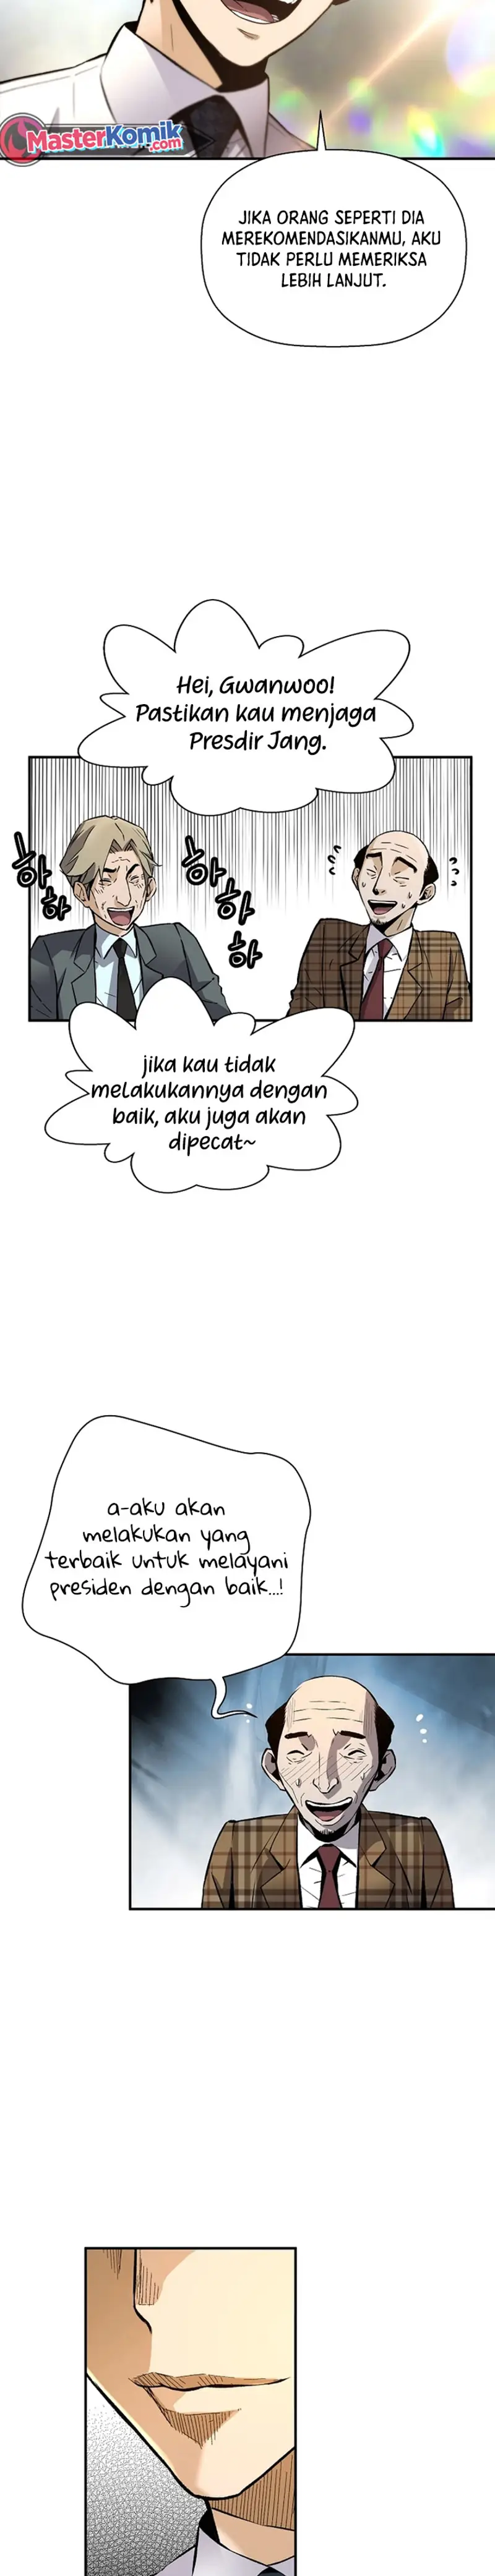 MasterKomik
.com
JIKA ORANG SEPERTI DIA
MEREKOMENDASIKANMU, AKU
TIDAK PERLU MEMERIKSA
LEBIH LANJUT.
Hei, Gwanwoo!
Pastikan kau menjaga
Presdir Jang.
하
하
하
하
하
jika kau tidak
melakukannya dengan
baik, aku juga akan
dipecat~
a-aku akan
melakukan yang
terbaik untuk melayani
presiden dengan baik...!